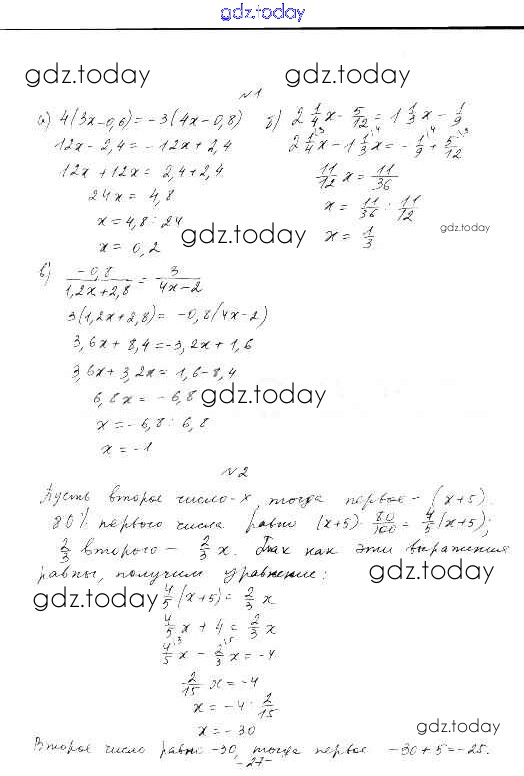 gdz.today
gdz.today gdz.today
№1
а) 4(3x-0,6)=-3(4x-0,8)
12x-2,4=-12x+2,4
12x+12x=2,4+2,4
24x=4,8
x=4,8:24
x=0,2
gdz.today
б) 2 1/4 x - 5/12 = 1 1/3 x - 1/9
2 1/4 x - 1 1/3 x = -1/9 + 5/12
11/12 x = 11/36
x = 11/36 : 11/12
x = 1/3
gdz.today
в) -0,8/(1,2x+2,8) = 3/(4x-2)
3(1,2x+2,8)=-0,8(4x-2)
3,6x+8,4=-3,2x+1,6
3,6x+3,2x=1,6-8,4
6,8x=-6,8
gdz.today
x=-6,8:6,8
x=-1
№2
Пусть второе число-x, тогда первое-(x+5).
80% первого числа равно (x+5)·80/100=4/5(x+5);
2/3 второго - 2/3 x. Так как эти выражения
равны, получим уравнение:
gdz.today
gdz.today
4/5(x+5)=2/3 x
4/5 x+4=2/3 x
4/5 x - 2/3 x=-4
2/15 x=-4
x=-4:2/15
x=-30
gdz.today
Второе число равно -30, тогда первое -30+5=-25.
-27-